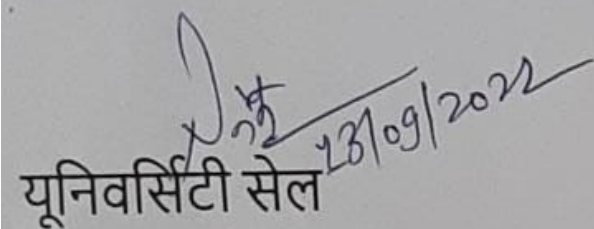 23/09/2022
यूनिवर्सिटी सेल